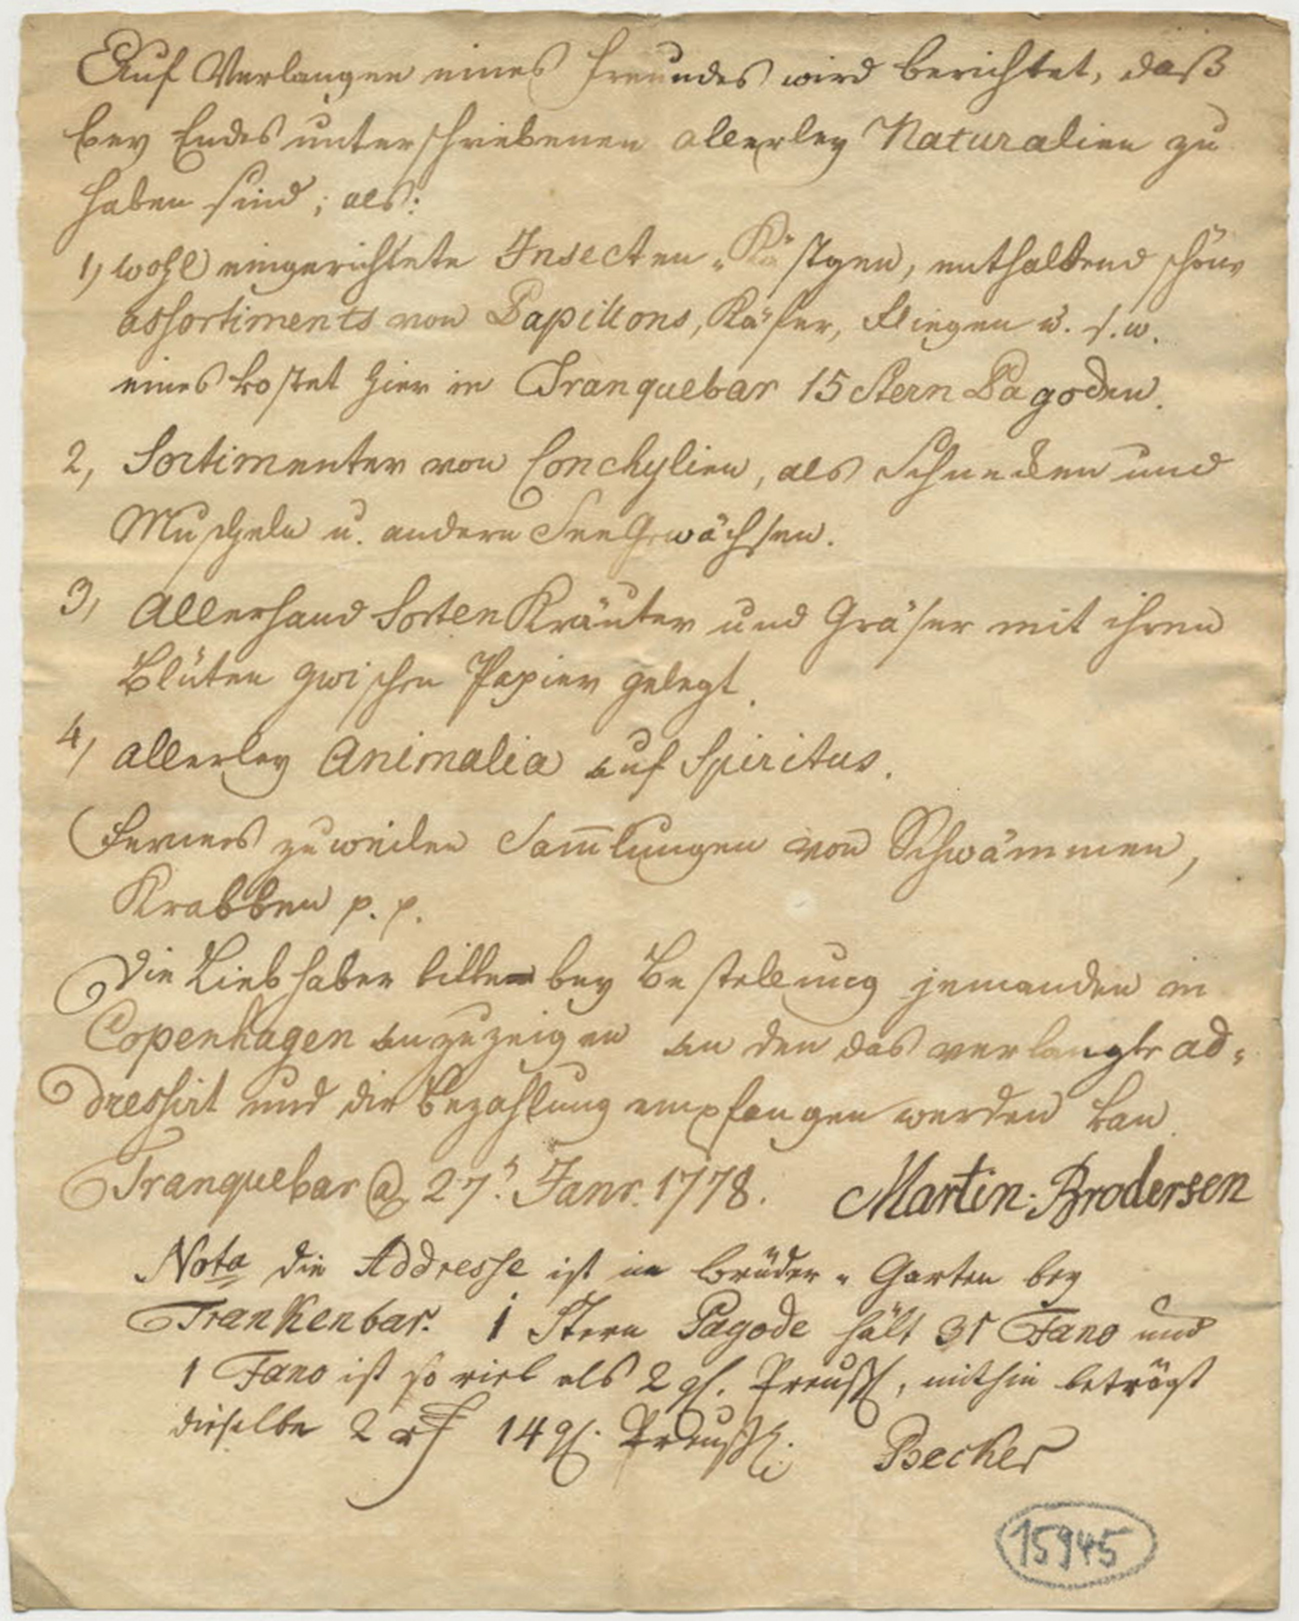 Auf Verlangen eines Freundes wird berichtet, daß
bey Endes unterschriebenen allerley Naturalien zu
haben sind; als:
1, wohl eingerichtete Insecten-Kästgen, enthaltend schöne
assortiments von Papillons, Käfer, Fliegen u. s. w.
eines kostet hier in Tranquebar 15 Stern Pagoden.
2, Sortimenter von Conchylien, als Schnecken und
Muscheln u. andern SeeGewächsen.
3, Allerhand Sorten Kräuter und Gräser mit ihren
Blüten zwischen Papier gelegt.
4, allerley Animalia auf Spiritus.
Ferners zuweilen Sam̅lungen von Schwämmen,
Krabben p. p.
Die Liebhaber bitte bey Bestellung jemanden in
Copenhagen anzuzeigen an den das verlangte ad-
dressirt und die Bezahlung empfangen werden kan.
Tranquebar 27. Janr. 1778. Martin Brodersen
Nota die Addresse ist im Brüder-Garten bey
Trankenbar. 1 Stern Pagode hält 31 Fano und
1 Fano ist so viel als 2 gl. Preuss., mithin beträgt
dieselbe 2 rf 14 gl. Preuss.. Becker
15945